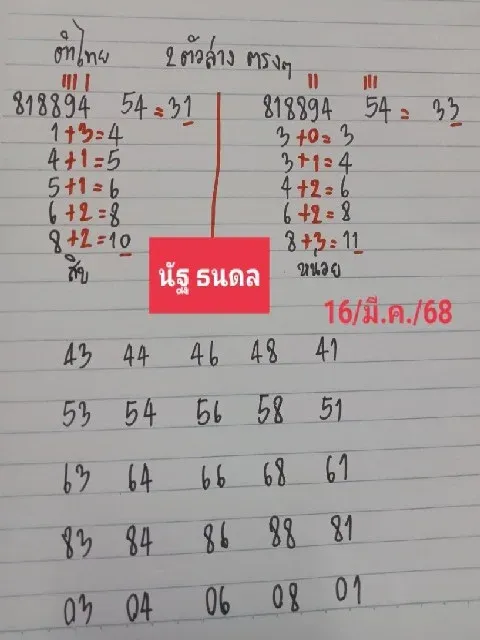 ทำไทย 2 ตัวล่าง ตรงๆ
818894 54 = 31 818894 54 = 33
1+3=4 3+0=3
4+1=5 3+1=4
5+1=6 4+2=6
6+2=8 6+2=8
8+2=10 8+3=11
สิบ หน่วย
นัฐ ธนดล
16/มี.ค./68
43 44 46 48 41
53 54 56 58 51
63 64 66 68 61
83 84 86 88 81
03 04 06 08 01